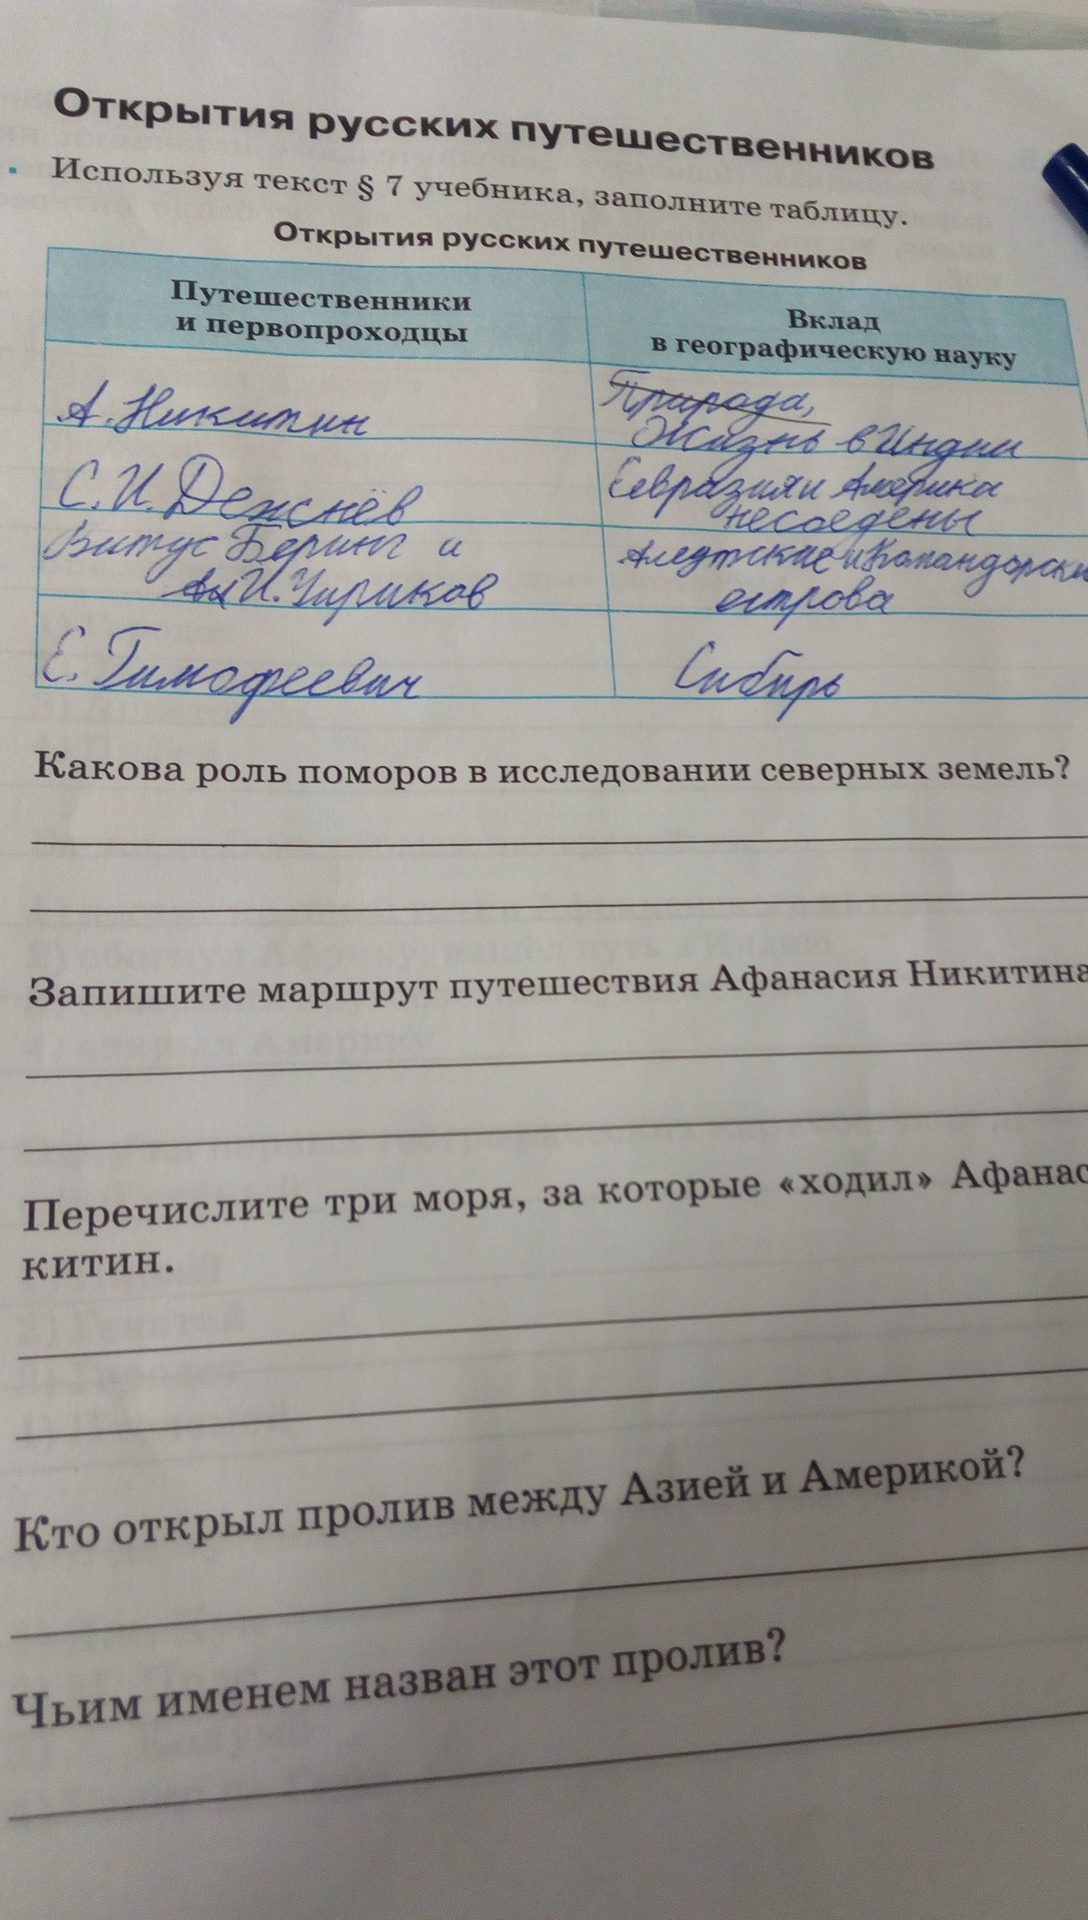 Открытия русских путешественников
Используя текст § 7 учебника, заполните таблицу.
Открытия русских путешественников
Путешественники
и первопроходцы
Вклад
в географическую науку
А. Никитин
Природа,
Жизнь в Индии
С. И. Дежнёв
Евразия и Америка
несоедены
Витус Беринг и
И. Чириков
Алеутские и Командорски
острова
Е. Тимофеевич
Сибирь
Какова роль поморов в исследовании северных земель?
Запишите маршрут путешествия Афанасия Никитина
Перечислите три моря, за которые «ходил» Афанас
китин.
Кто открыл пролив между Азией и Америкой?
Чьим именем назван этот пролив?